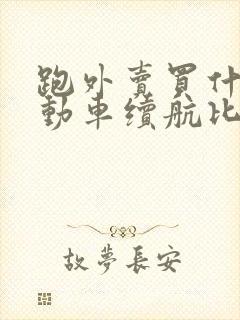 跑外賣買什
動車續航比
故夢長安